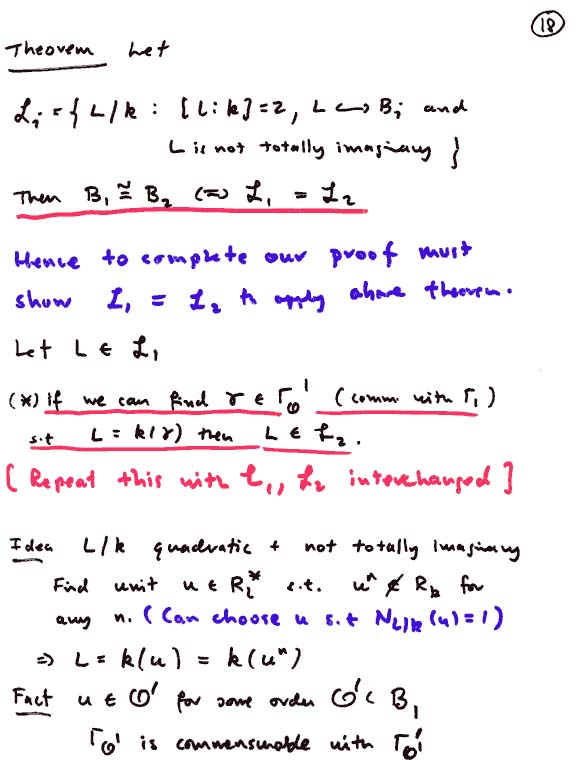 18
Theorem Let
ℒᵢ = { L/k : [L:k]=2, L ↪ Bᵢ and
L is not totally imaginary }
Then B₁ ≅ B₂ ⟺ ℒ₁ = ℒ₂
Hence to complete our proof must
show ℒ₁ = ℒ₂ to apply above theorem.
Let L ∈ ℒ₁
(*) if we can find γ ∈ Γ_𝒪¹ (comm. with Γ₁)
s.t L = k(γ) then L ∈ ℒ₂.
[ Repeat this with ℒ₁, ℒ₂ interchanged ]
Idea L/k quadratic + not totally imaginary
Find unit u ∈ R_L^* s.t. uⁿ ∉ R_k for
any n. (Can choose u s.t N_{L/k}(u)=1)
⇒ L = k(u) = k(uⁿ)
Fact u ∈ 𝒪' for some order 𝒪' ⊂ B₁
Γ_𝒪'¹ is commensurable with Γ_𝒪¹